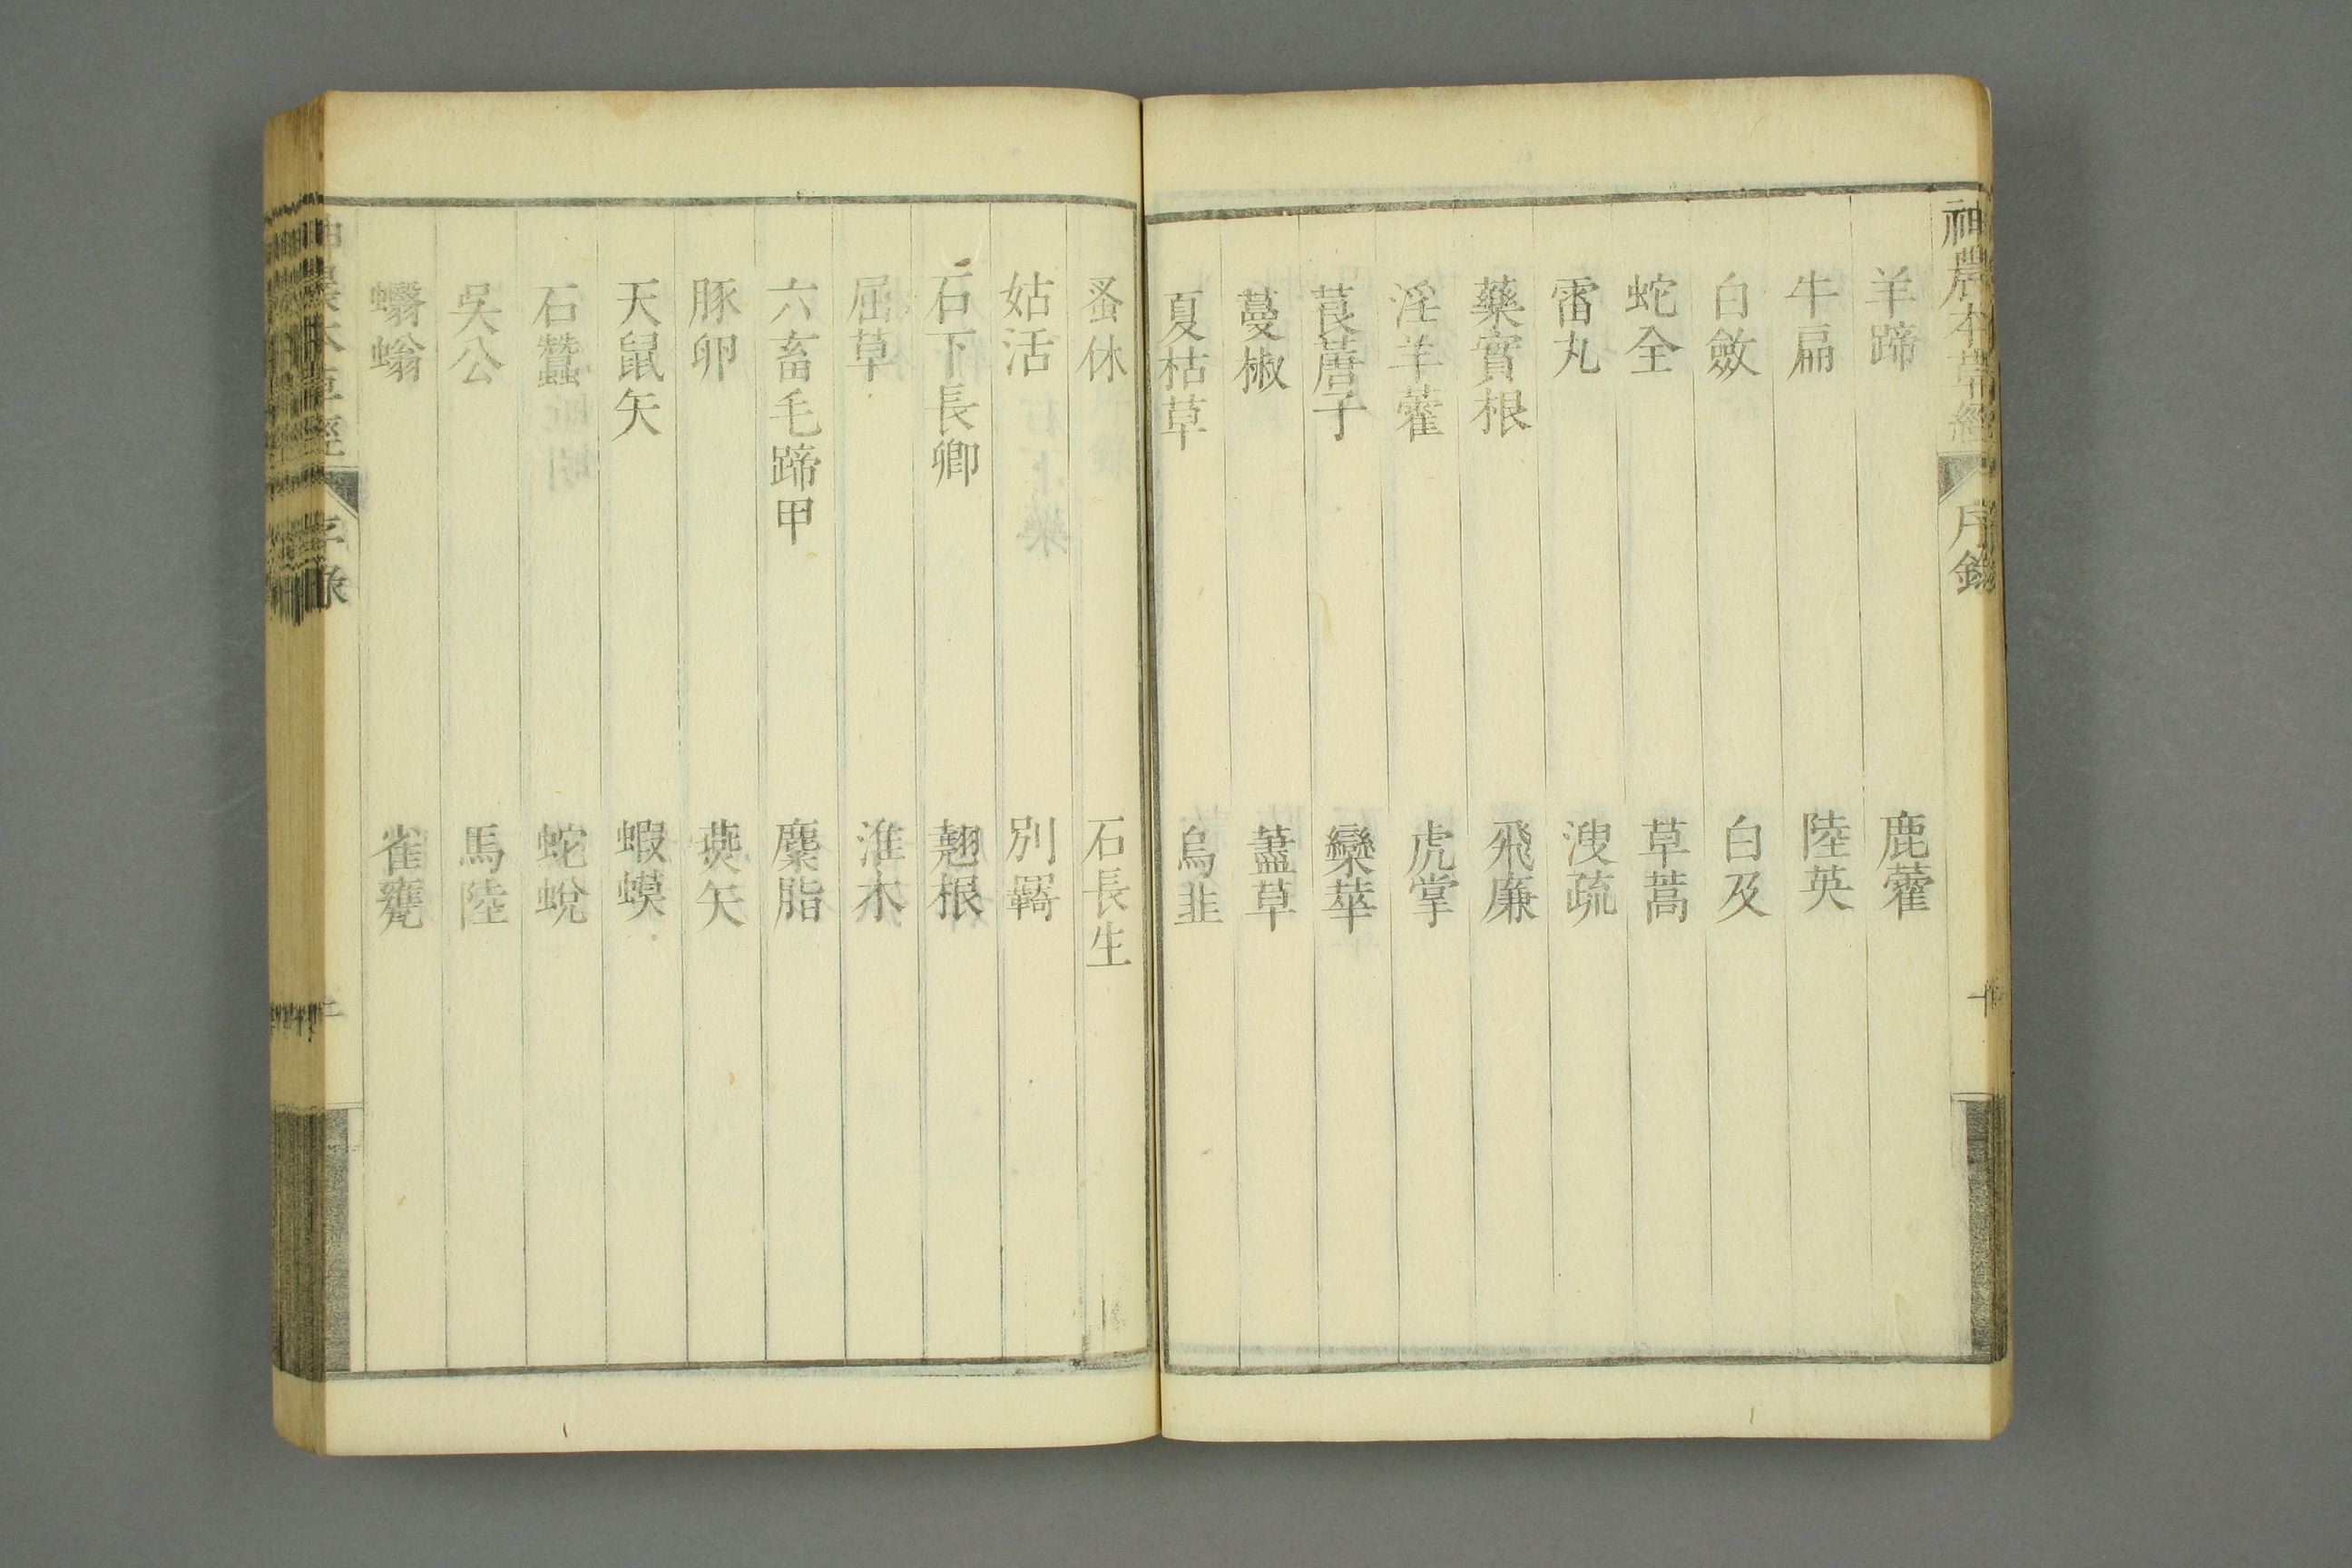 神農本草經 序錄
羊蹄 鹿藿
牛扁 陸英
白斂 白及
蛇全 草蒿
雷丸 溲疏
藥實根 飛廉
淫羊藿 虎掌
莨蓎子 欒華
蔓椒 藎草
夏枯草 烏韭
蚤休 石長生
姑活 別羇
石下長卿 翹根
屈草 淮木
六畜毛蹄甲 麋脂
豚卵 燕矢
天鼠矢 蝦蟆
石蠶 蛇蛻
吳公 馬陸
蠮螉 雀甕